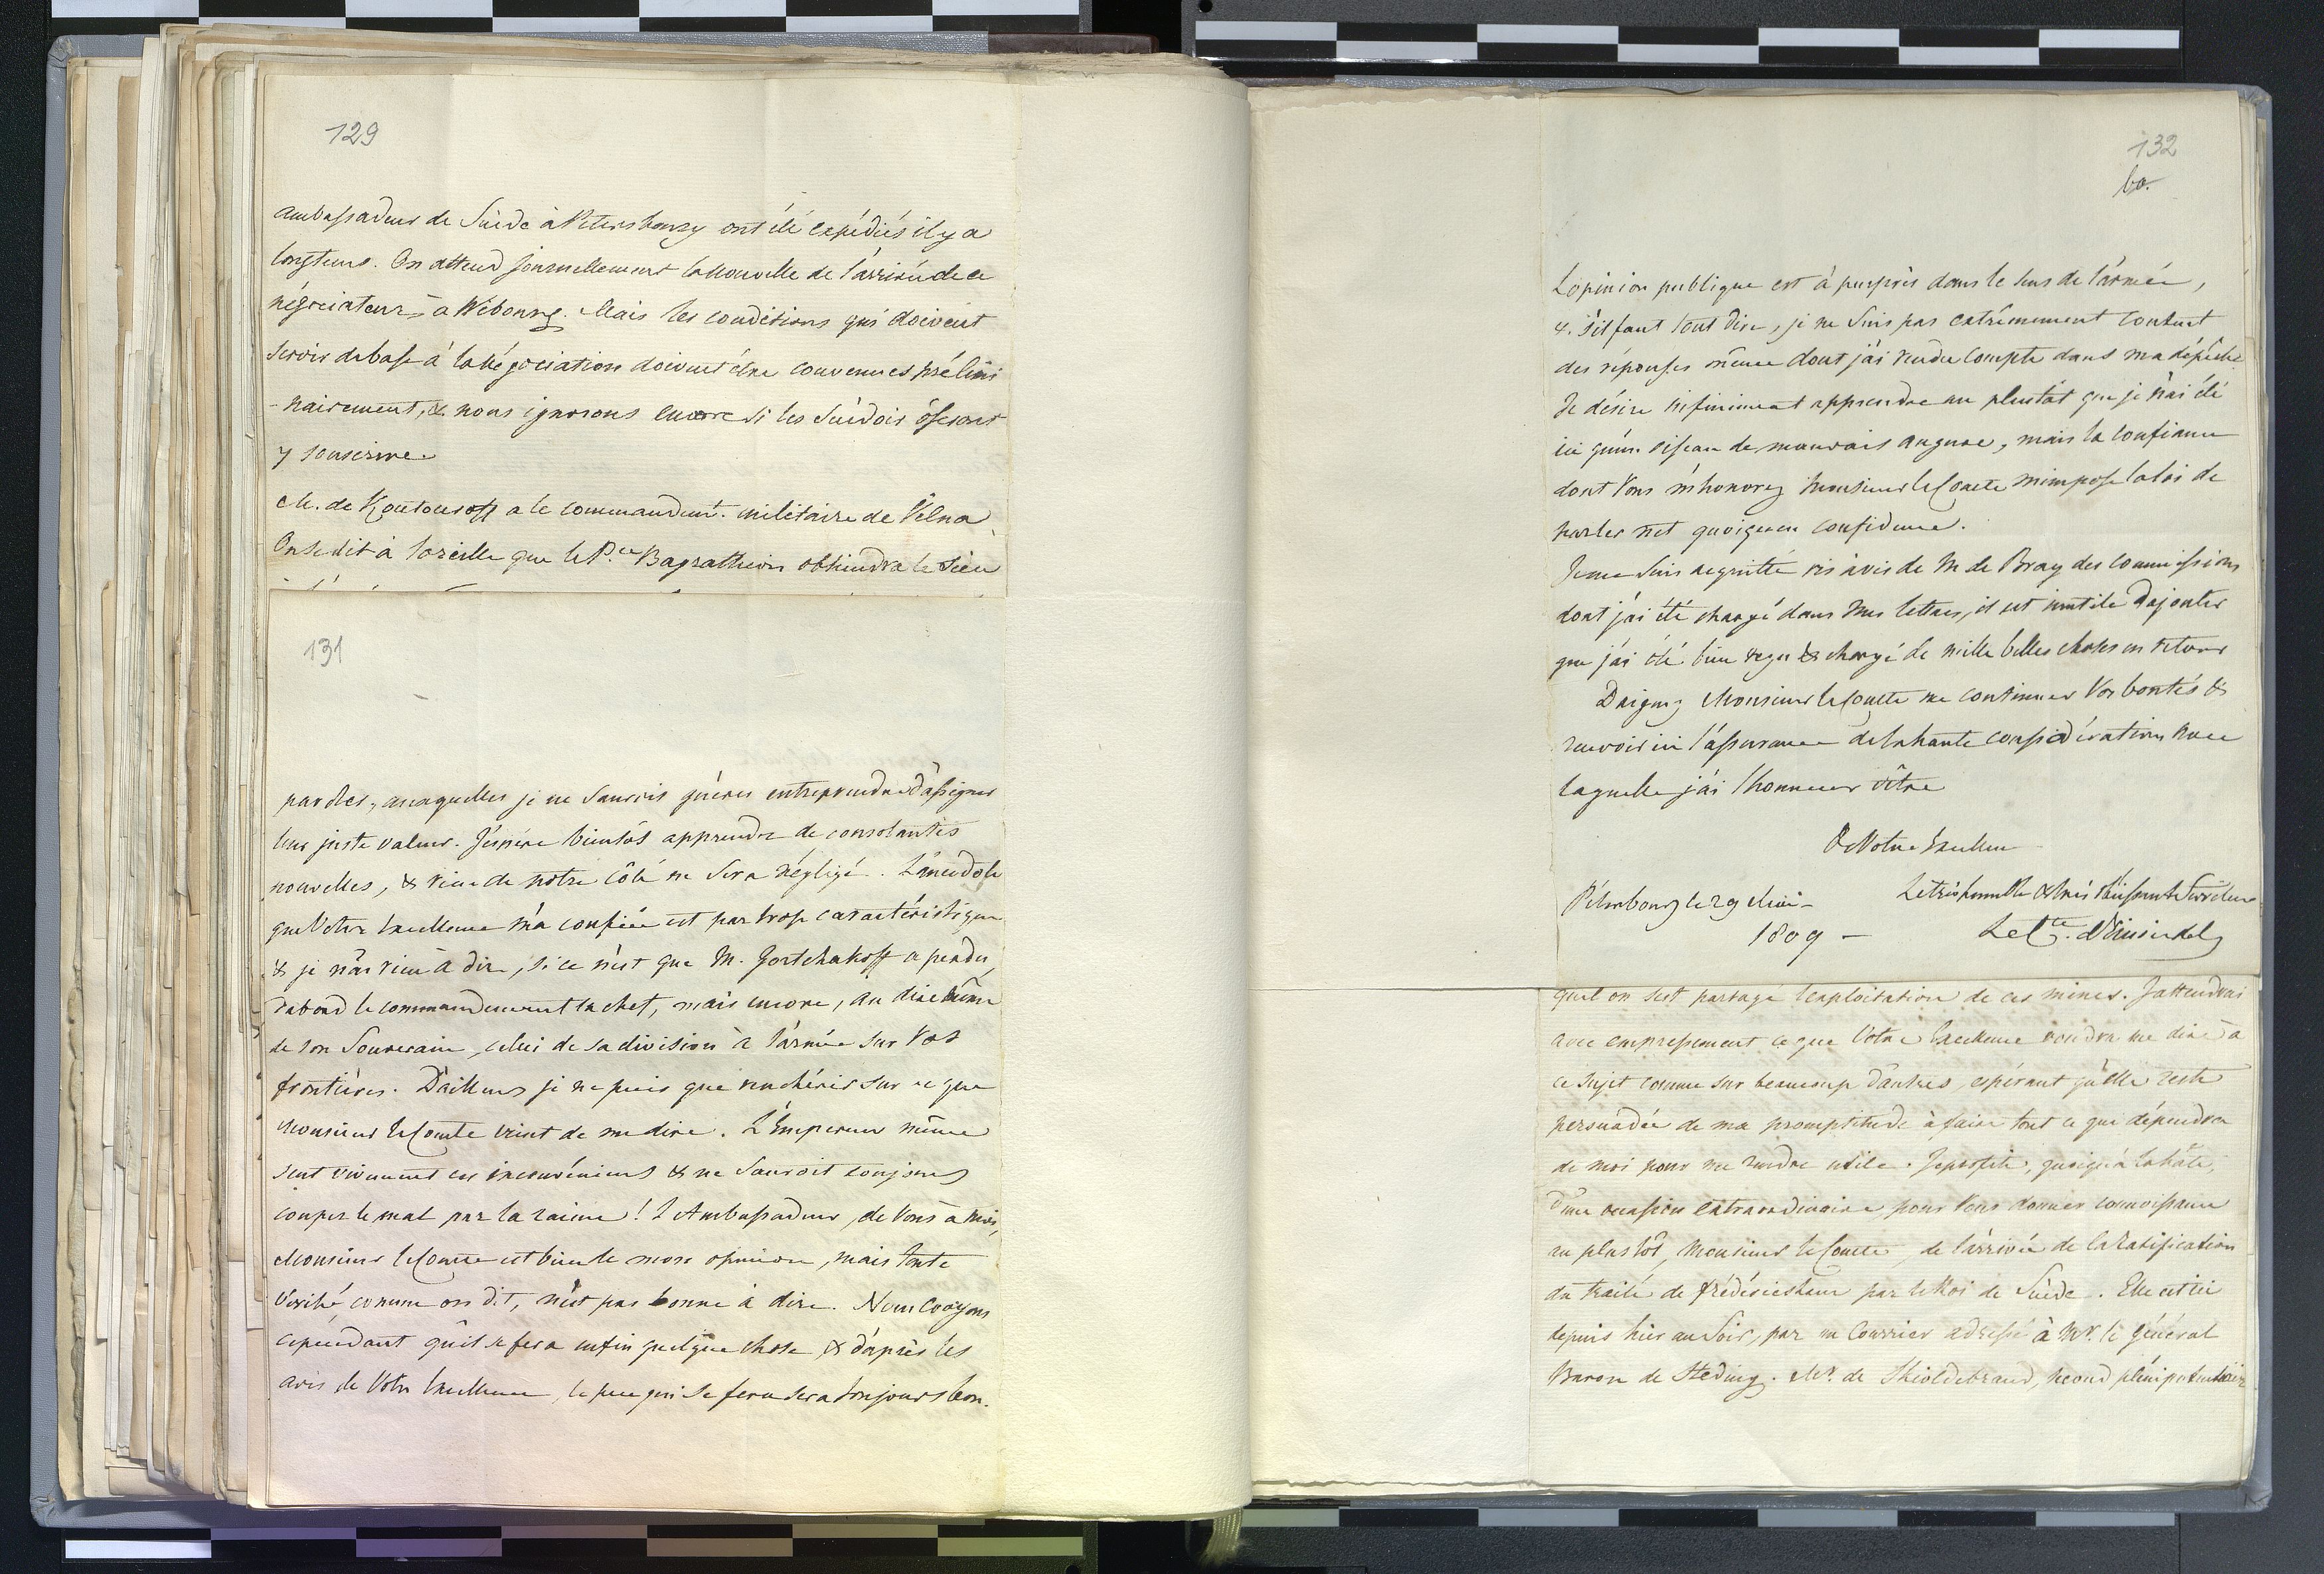 129
ambassadeur de Suède à Petersbourg ont été expédiés il y a
longtems. On attend journellement la nouvelle de l'arrivée de ce
négociateur à Wibourg. Mais les conditions qui doivent
servir de base à la négociation doivent être convenues prélimi
-nairement, & nous ignorons encore si les Suédois oseront
y souscrire.
M. de Koutousoff a le commandemt. militaire de Vilna
On se dit à l'oreille que le Pce Bagrathion obtiendra le sien
131
paroles, auxquelles je ne saurois guères entreprendre d'assigner
leur juste valeur. J'espère bientôt apprendre de consolantes
nouvelles, & rien de notre côté ne sera négligé. L'anecdote
que Votre Excellence m'a confiée est par trop caractéristique
& je n'ai rien à dire, si ce n'est que M. Gortchakoff a perdu,
d'abord le commandement en chef, mais encore, au dire même
de son Souverain, celui de sa division à l'armée sur Vos
frontières. D'ailleurs je ne puis que renchérir sur ce que
Monsieur le Comte vient de me dire. L'Empereur même
sent vivement ces inconvéniens & ne sauroit toujours
couper le mal par la racine! L'Ambassadeur, de Vous à moi,
Monsieur le Comte est bien de mon opinion, mais toute
vérité comme on dit, n'est pas bonne à dire. Nous croyons
cependant qu'il se fera enfin quelque chose & d'après les
avis de Votre Excellence, le peu qui se fera sera toujours bon.
132
60.
L'opinion publique est à peuprès dans le sens de l'armée,
&. s'il faut tout dire, je ne suis pas extrêmement content
des réponses même dont j'ai rendu compte dans ma dépêche.
Je désire infiniment apprendre au plustôt que je n'ai été
ici qu'un oiseau de mauvais augure, mais la confiance
dont Vous m'honorez Monsieur le Comte m'impose la loi de
parler net quoiqu'en confidence.
Je me suis acquitté vis à vis de M de Bray des commissions
dont j'ai été chargé dans Vos lettres, il est inutile d'ajouter
que j'ai été bien reçu & chargé de mille belles choses en retour
Daignez Monsieur le Comte me continuer Vos bontés &
recevoir ici l'assurance de la haute considération avec
laquelle j'ai l'honneur d'être
De Votre Excellence
Pétersbourg le 29 Mai
1809 -
Le très humble & très obéissant Serviteur
Le Cte. d'Einsiedel
quel on s'est partagé l'exploitation de ces mines. J'attendrai
avec empressement ce que Votre Excellence voudra me dire à
ce sujet comme sur beaucoup d'autres, espérant qu'elle reste
persuadée de ma promptitude à faire tout ce que dépendra
de moi pour me rendre utile. Je profite, quoiqu'à la hâte,
d'une occasion extraordinaire pour Vous donner connoissance
au plus tôt, Monsieur le Comte, de l'arrivée de la ratification
du traité de frédéricsham par le Roi de Suède. Elle est ici
depuis hier au soir, par un Courrier adressé à Mr. le général
Baron de Steding. Mr. de Skioldebrand, second plénipotentiaire